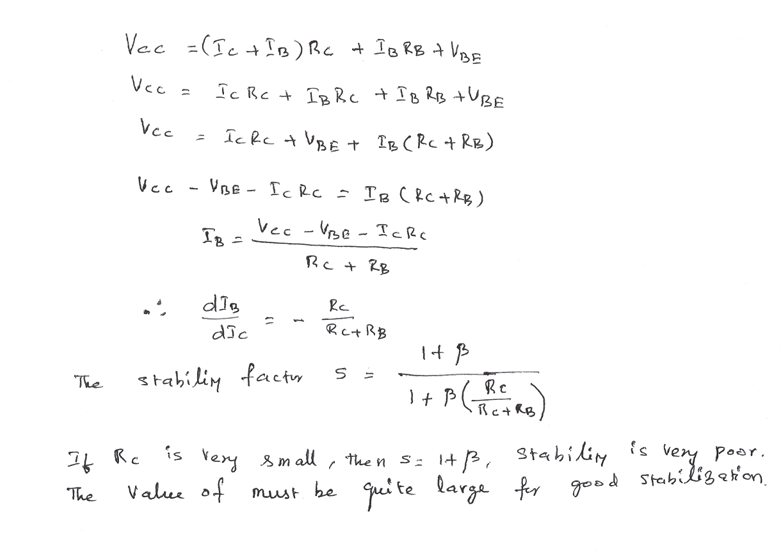 Vcc = (Ic + IB) Rc + IB RB + VBE
Vcc = Ic Rc + IB Rc + IB RB + VBE
Vcc = Ic Rc + VBE + IB (Rc + RB)
Vcc - VBE - Ic Rc = IB (Rc + RB)
IB = Vcc - VBE - Ic Rc
Rc + RB
∴ dIB / dIc = - Rc / Rc + RB
The stability factor S = 1 + β / 1 + β ( Rc / Rc + RB )
If Rc is very small, then S = 1 + β, stability is very poor.
The value of must be quite large for good stabilization.